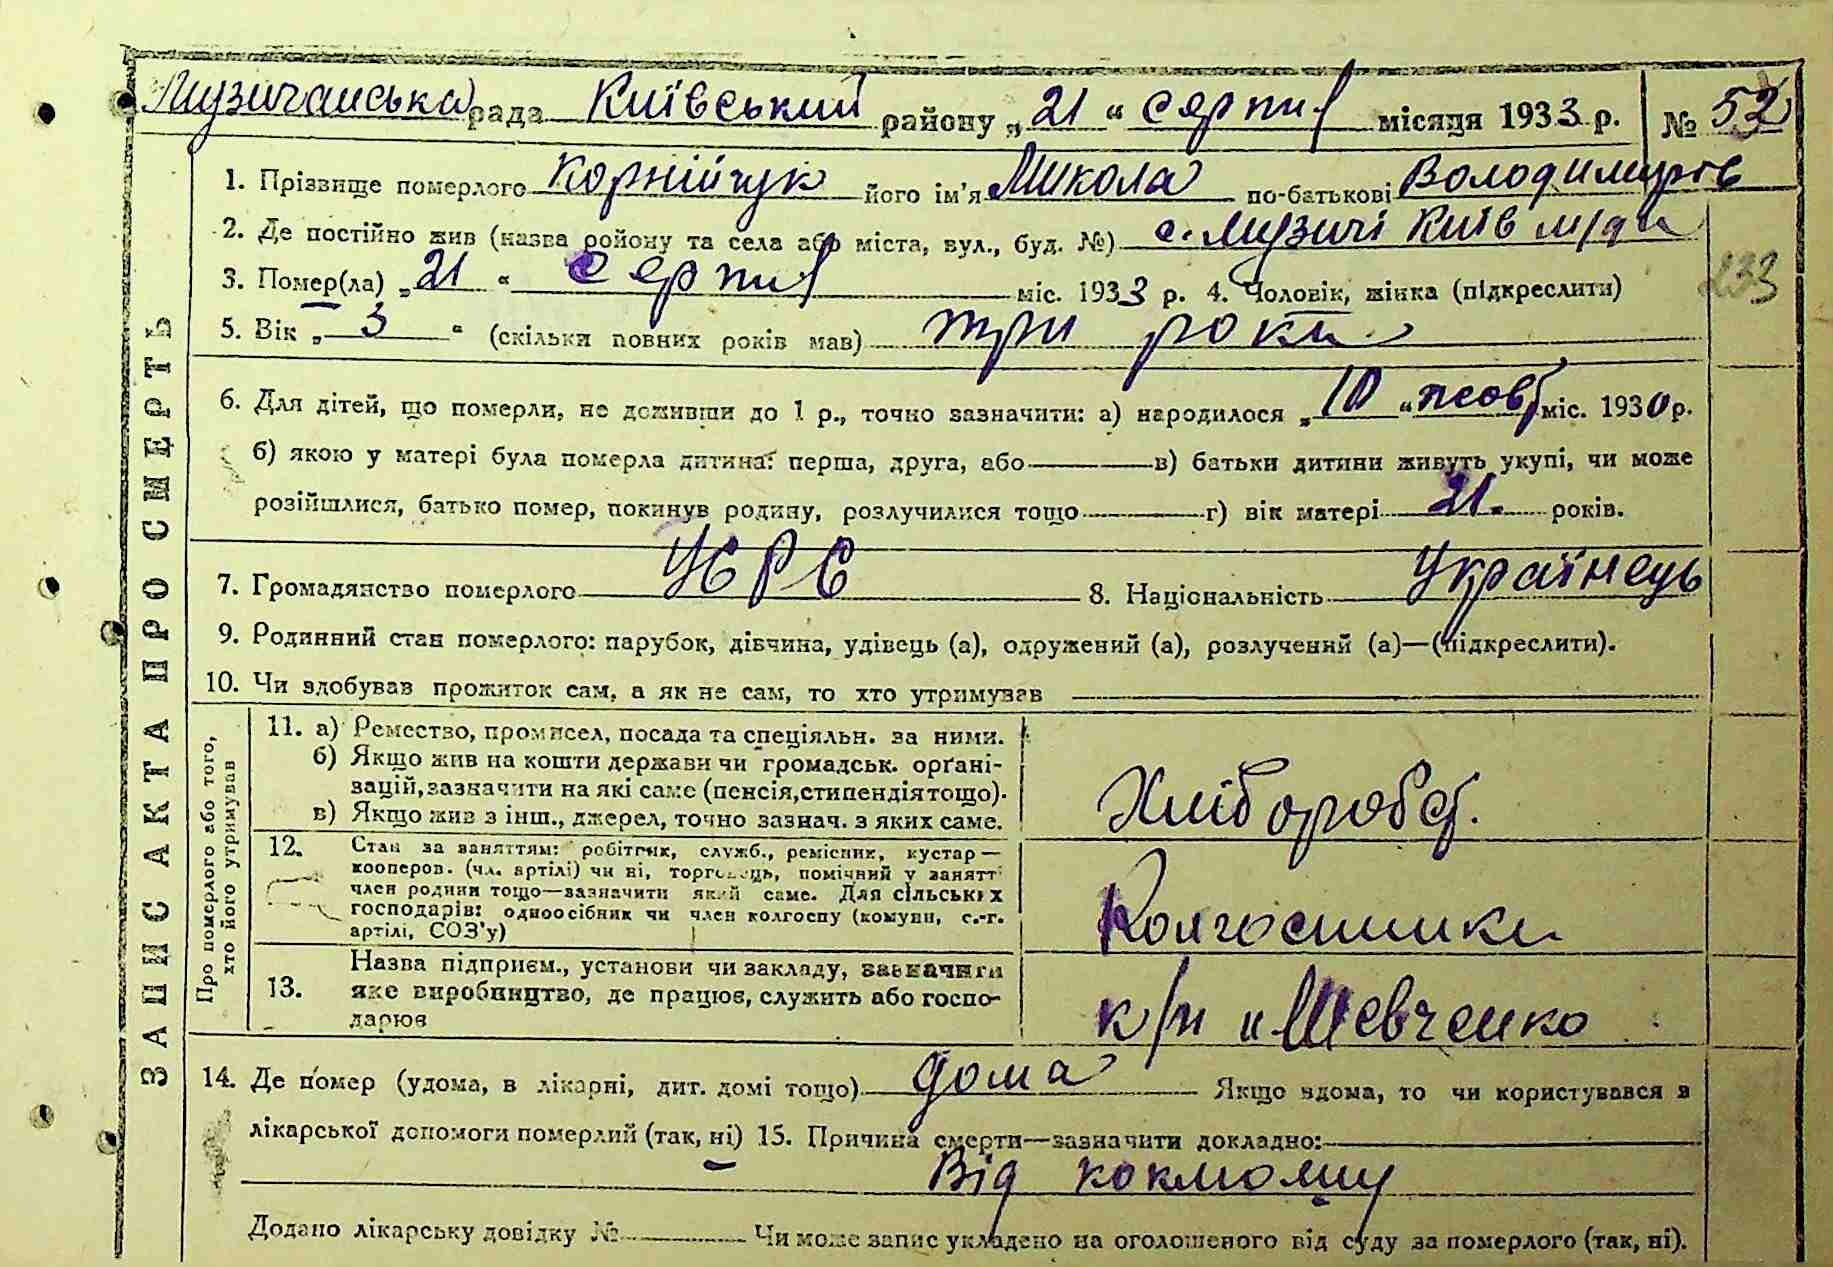 Музичанська рада Київський району „21“ серпня місяця 1933 р. № 52
ЗАПИС АКТА ПРО СМЕРТЬ
1. Прізвище померлого Корнійчук його ім'я Микола по-батькові Володимирів
2. Де постійно жив (назва району та села або міста, вул., буд. №) с. Музичі Київ м/ра
3. Помер(ла) „21“ серпня міс. 1933 р. 4. Чоловік, жінка (підкреслити)
233
5. Вік „3“ (скільки повних років мав) три роки
6. Для дітей, що померли, не доживши до 1 р., точно зазначити: а) народилося „10“ жовт міс. 1930 р.
б) якою у матері була померла дитина: перша, друга, або в) батьки дитини живуть укупі, чи може
розійшлися, батько помер, покинув родину, розлучилися тощо г) вік матері 21. років.
7. Громадянство померлого УСРС 8. Національність Українець
9. Родинний стан померлого: парубок, дівчина, удівець (а), одружений (а), розлучений (а)—(підкреслити).
10. Чи здобував прожиток сам, а як не сам, то хто утримував
Про померлого або того,
хто його утримував
11. а) Ремество, промисел, посада та спеціяльн. за ними.
б) Якщо жив на кошти держави чи громадськ. орґані-
зацій, зазначити на які саме (пенсія, стипендія тощо).
в) Якщо жив з інш., джерел, точно зазнач. з яких саме.
Хліборобст.
12. Стан за заняттям: робітник, служб., ремісник, кустар—
кооперов. (чл. артілі) чи ні, торговець, помічний у занятт
член родини тощо—зазначити який саме. Для сільських
господарів: одноосібник чи член колгоспу (комуни, с.-г.
артілі, СОЗ'у)
Колгоспники
13. Назва підприєм., установи чи закладу, зазначити
яке виробництво, де працює, служить або госпо-
дарює
к/г и Шевченко
14. Де помер (удома, в лікарні, дит. домі тощо) дома Якщо вдома, то чи користувався з
лікарської допомоги померлий (так, ні) 15. Причина смерти—зазначити докладно:
Від коклюшу
Додано лікарську довідку № Чи може запис укладено на оголошеного від суду за померлого (так, ні).